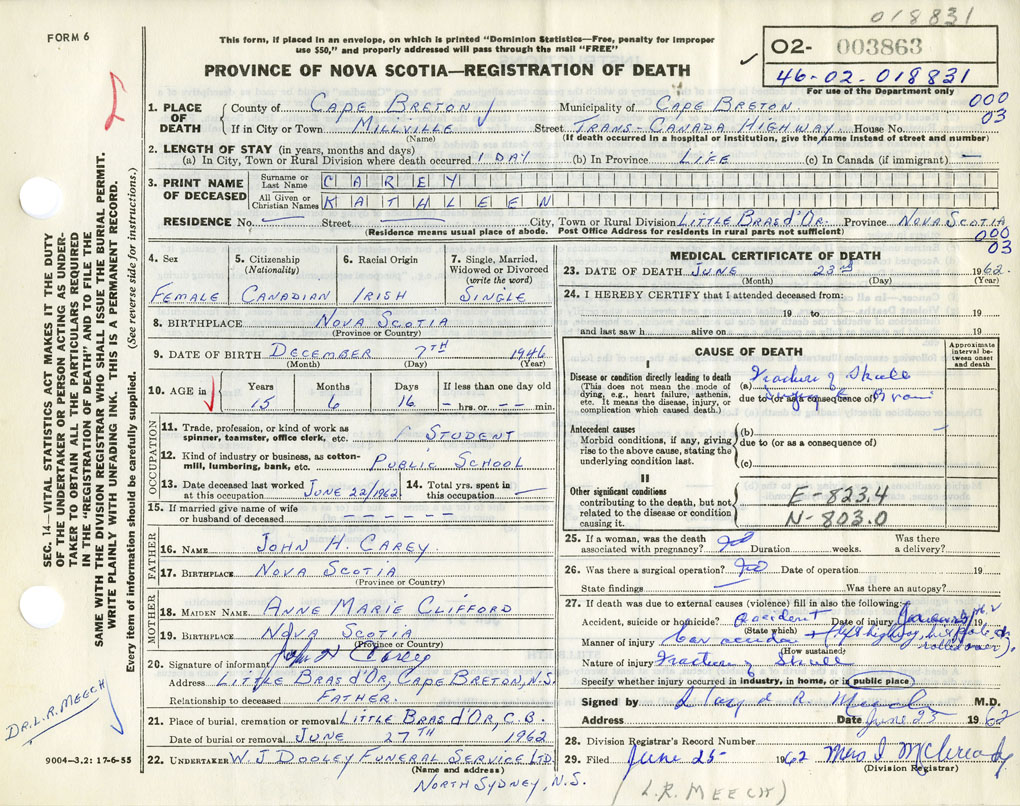 018831
FORM 6
This form, if placed in an envelope, on which is printed "Dominion Statistics—Free, penalty for improper
use $50," and properly addressed will pass through the mail "FREE"
PROVINCE OF NOVA SCOTIA—REGISTRATION OF DEATH
02- 003863
46-02-018831
For use of the Department only
000
03
1. PLACE OF DEATH
County of CAPE BRETON
Municipality of CAPE BRETON
If in City or Town MILLVILLE Street TRANS-CANADA HIGHWAY House No.
(Name) (If death occurred in a hospital or institution, give the name instead of street and number)
2. LENGTH OF STAY (in years, months and days)
(a) In City, Town or Rural Division where death occurred 1 DAY (b) In Province LIFE (c) In Canada (if immigrant) —
3. PRINT NAME OF DECEASED
Surname or Last Name CAREY
All Given or Christian Names KATHLEEN
RESIDENCE No. — Street — City, Town or Rural Division LITTLE BRAS d'OR Province NOVA SCOTIA
(Residence means usual place of abode. Post Office Address for residents in rural parts not sufficient)
000
03
4. Sex
FEMALE
5. Citizenship
(Nationality)
CANADIAN
6. Racial Origin
IRISH
7. Single, Married,
Widowed or Divorced
(write the word)
SINGLE
8. BIRTHPLACE NOVA SCOTIA
(Province or Country)
9. DATE OF BIRTH DECEMBER 7TH 1946
(Month) (Day) (Year)
10. AGE in
Years Months Days If less than one day old
15 6 16 – hrs. or – – min.
OCCUPATION
11. Trade, profession, or kind of work as
spinner, teamster, office clerk, etc. STUDENT
12. Kind of industry or business, as cotton-
mill, lumbering, bank, etc. PUBLIC SCHOOL
13. Date deceased last worked
at this occupation JUNE 22/1962
14. Total yrs. spent in
this occupation —
15. If married give name of wife
or husband of deceased – – – – – –
FATHER
16. NAME JOHN H. CAREY.
17. BIRTHPLACE NOVA SCOTIA
(Province or Country)
MOTHER
18. MAIDEN NAME ANNE MARIE CLIFFORD
19. BIRTHPLACE NOVA SCOTIA
(Province or Country)
20. Signature of informant John H Carey
Address LITTLE BRAS D'OR, CAPE BRETON, N.S.
Relationship to deceased FATHER.
21. Place of burial, cremation or removal LITTLE BRAS d'OR, C.B.
Date of burial or removal JUNE 27TH 1962
22. UNDERTAKER W.J. DOOLEY FUNERAL SERVICE LTD
(Name and address)
NORTH SYDNEY, N.S.
MEDICAL CERTIFICATE OF DEATH
23. DATE OF DEATH JUNE 23rd 1962
(Month) (Day) (Year)
24. I HEREBY CERTIFY that I attended deceased from:
19 to 19
and last saw h alive on 19
CAUSE OF DEATH
Approximate
interval be-
tween onset
and death
I
Disease or condition directly leading to death
(This does not mean the mode of
dying, e.g., heart failure, asthenia,
etc. It means the disease, injury, or
complication which caused death.)
(a) Fracture of Skull
due to (or as a consequence of)
Antecedent causes
Morbid conditions, if any, giving
rise to the above cause, stating the
underlying condition last.
(b)
due to (or as a consequence of)
(c)
II
Other significant conditions
contributing to the death, but not
related to the disease or condition
causing it.
E-823.4
N-803.0
25. If a woman, was the death
associated with pregnancy? No Duration weeks. Was there
a delivery?
26. Was there a surgical operation? No Date of operation 19
State findings Was there an autopsy?
27. If death was due to external causes (violence) fill in also the following:
Accident, suicide or homicide? Accident Date of injury 19
(State which)
Manner of injury Car accident (left highway, hit pole & rolled over).
(How sustained)
Nature of injury Fracture of Skull
Specify whether injury occurred in industry, in home, or in public place
Signed by R. Meech M.D.
Address Date June 25 1962
28. Division Registrar's Record Number
29. Filed June 25 1962
(Division Registrar)
(L.R. MEECH)
SEC. 14—VITAL STATISTICS ACT MAKES IT THE DUTY
OF THE UNDERTAKER OR PERSON ACTING AS UNDER-
TAKER TO OBTAIN ALL THE PARTICULARS REQUIRED
IN THE "REGISTRATION OF DEATH" AND TO FILE THE
SAME WITH THE DIVISION REGISTRAR WHO SHALL ISSUE THE BURIAL PERMIT.
WRITE PLAINLY WITH UNFADING INK. THIS IS A PERMANENT RECORD.
Every item of information should be carefully supplied. (See reverse side for instructions.)
DR. L.R. MEECH
9004—3.2: 17-6-55